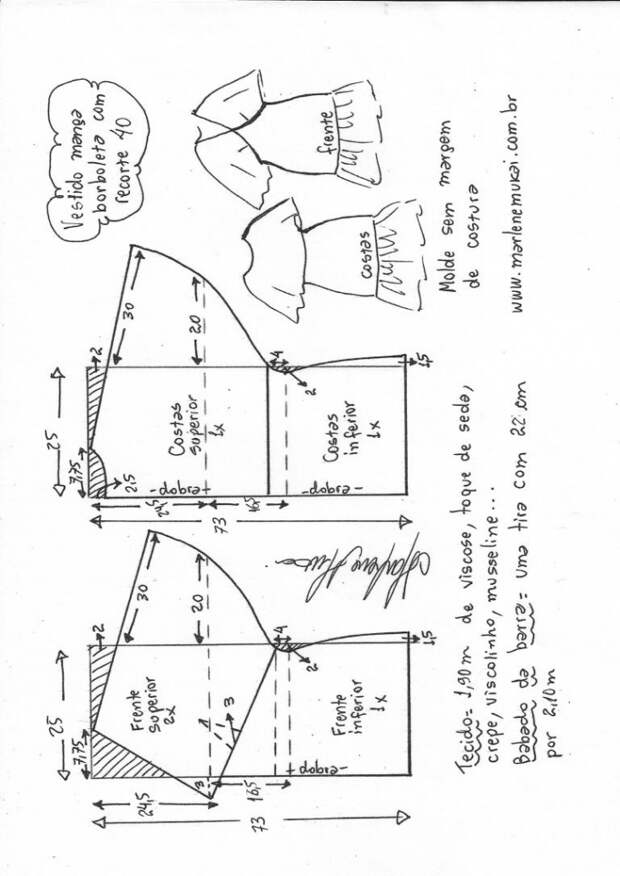 Vestido manga
borboleta com
recorte 40
frente
costas
Molde sem margem
de costura
www.marlenemukai.com.br
25
7,75
2
30
20
4
2
1,5
2,5
24,5
16,5
73
Costas
superior
1x
dobra
Costas
inferior
1x
dobra
25
7,75
2
30
20
4
2
1,5
3
3
24,5
16,5
73
Frente
superior
2x
Frente
inferior
1x
dobra
Tecido= 1,90m de viscose, toque de seda,
crepe, viscolinho, musseline...
Babado da barra= uma tira com 22 cm
por 2,10m